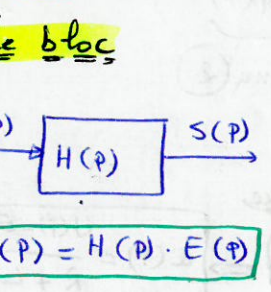 e bloc
P) S(P)
H(P)
(P) = H(P) · E(P)